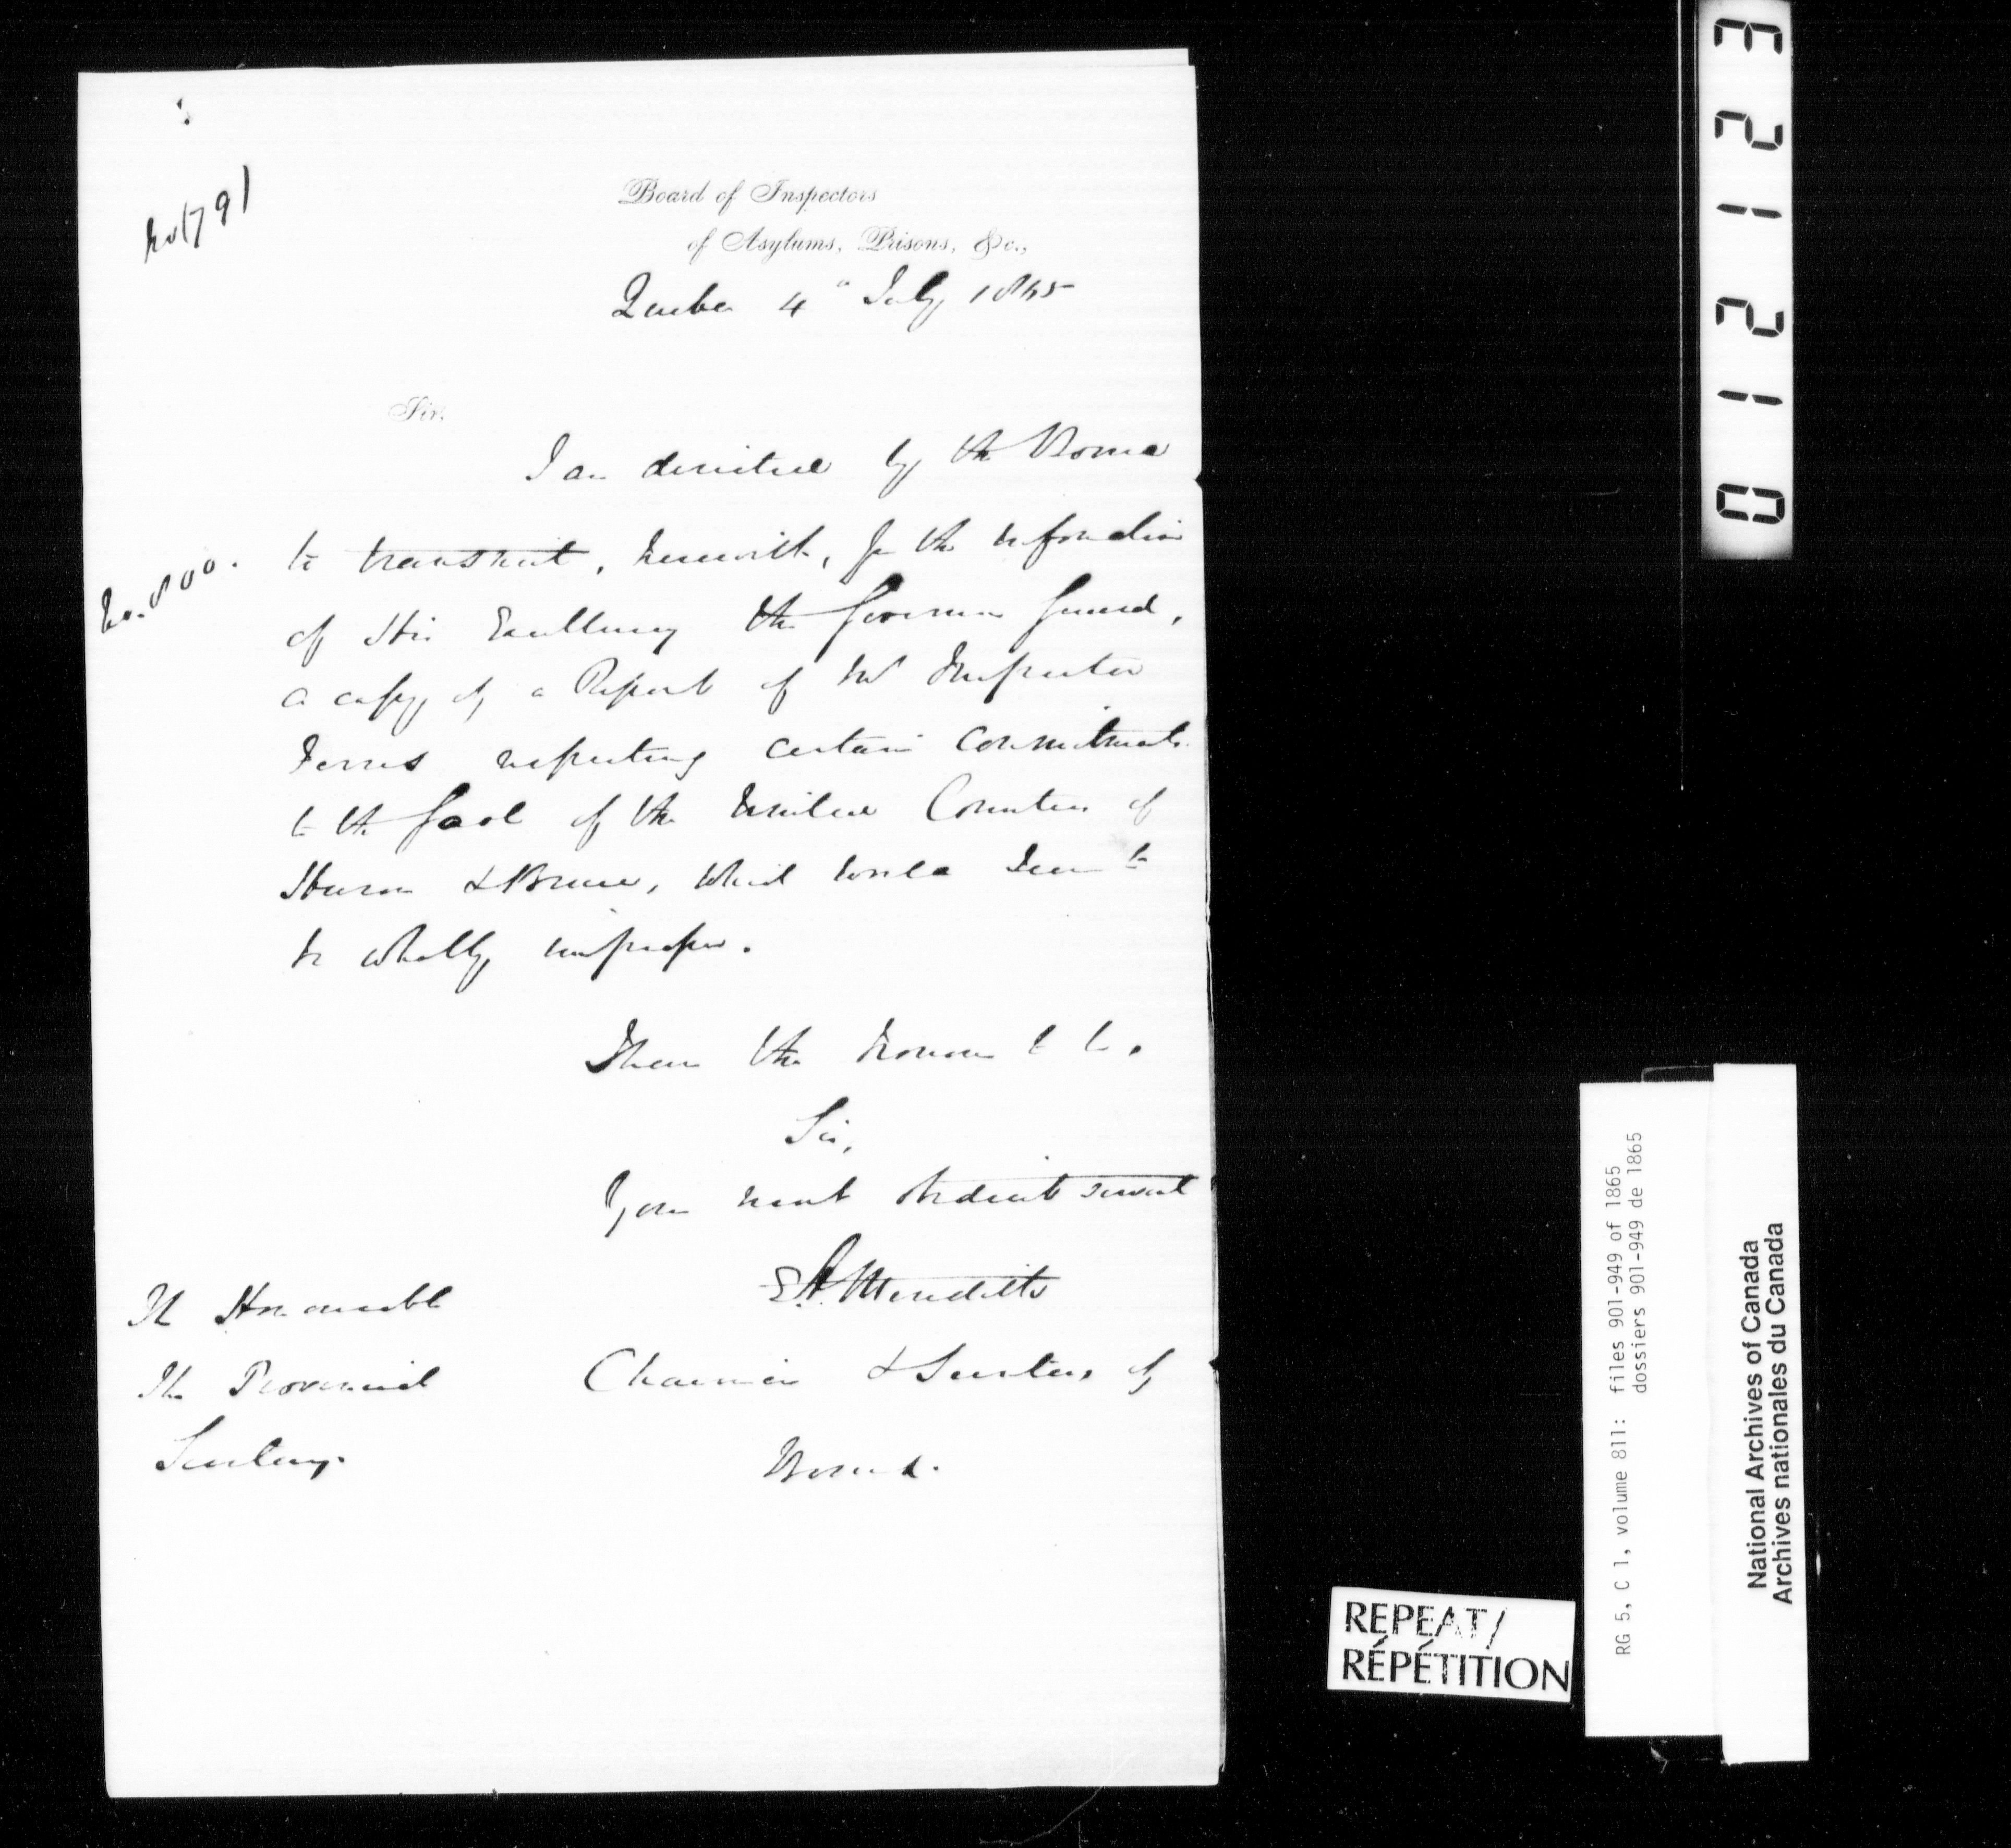 No 1791
Board of Inspectors
of Asylums, Prisons, &c.,
Quebec 4" July 1865
Sir,
I am directed by the Board
to transmit, herewith, for the information
No. 800.
of His Excellency the Governor General,
a copy of a Report of Mr Inspector
Ferres respecting certain Commitments
to the Gaol of the United Counties of
Huron & Bruce, which would seem to
be wholly improper.
I have the honour to be,
Sir,
Your most obedient servant
E.A. Meredith
Chairman & Secretary of
Board.
The Honourable
The Provincial
Secretary.
012123
RG 5, C 1, volume 811: files 901-949 of 1865
dossiers 901-949 de 1865
National Archives of Canada
Archives nationales du Canada
REPEAT/
RÉPÉTITION